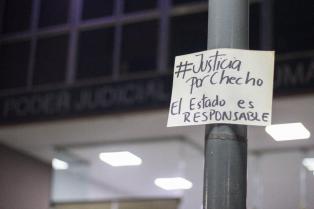 PODER JUDICIAL
#Justicia
por Checho
El Estado es
RESPONSABLE